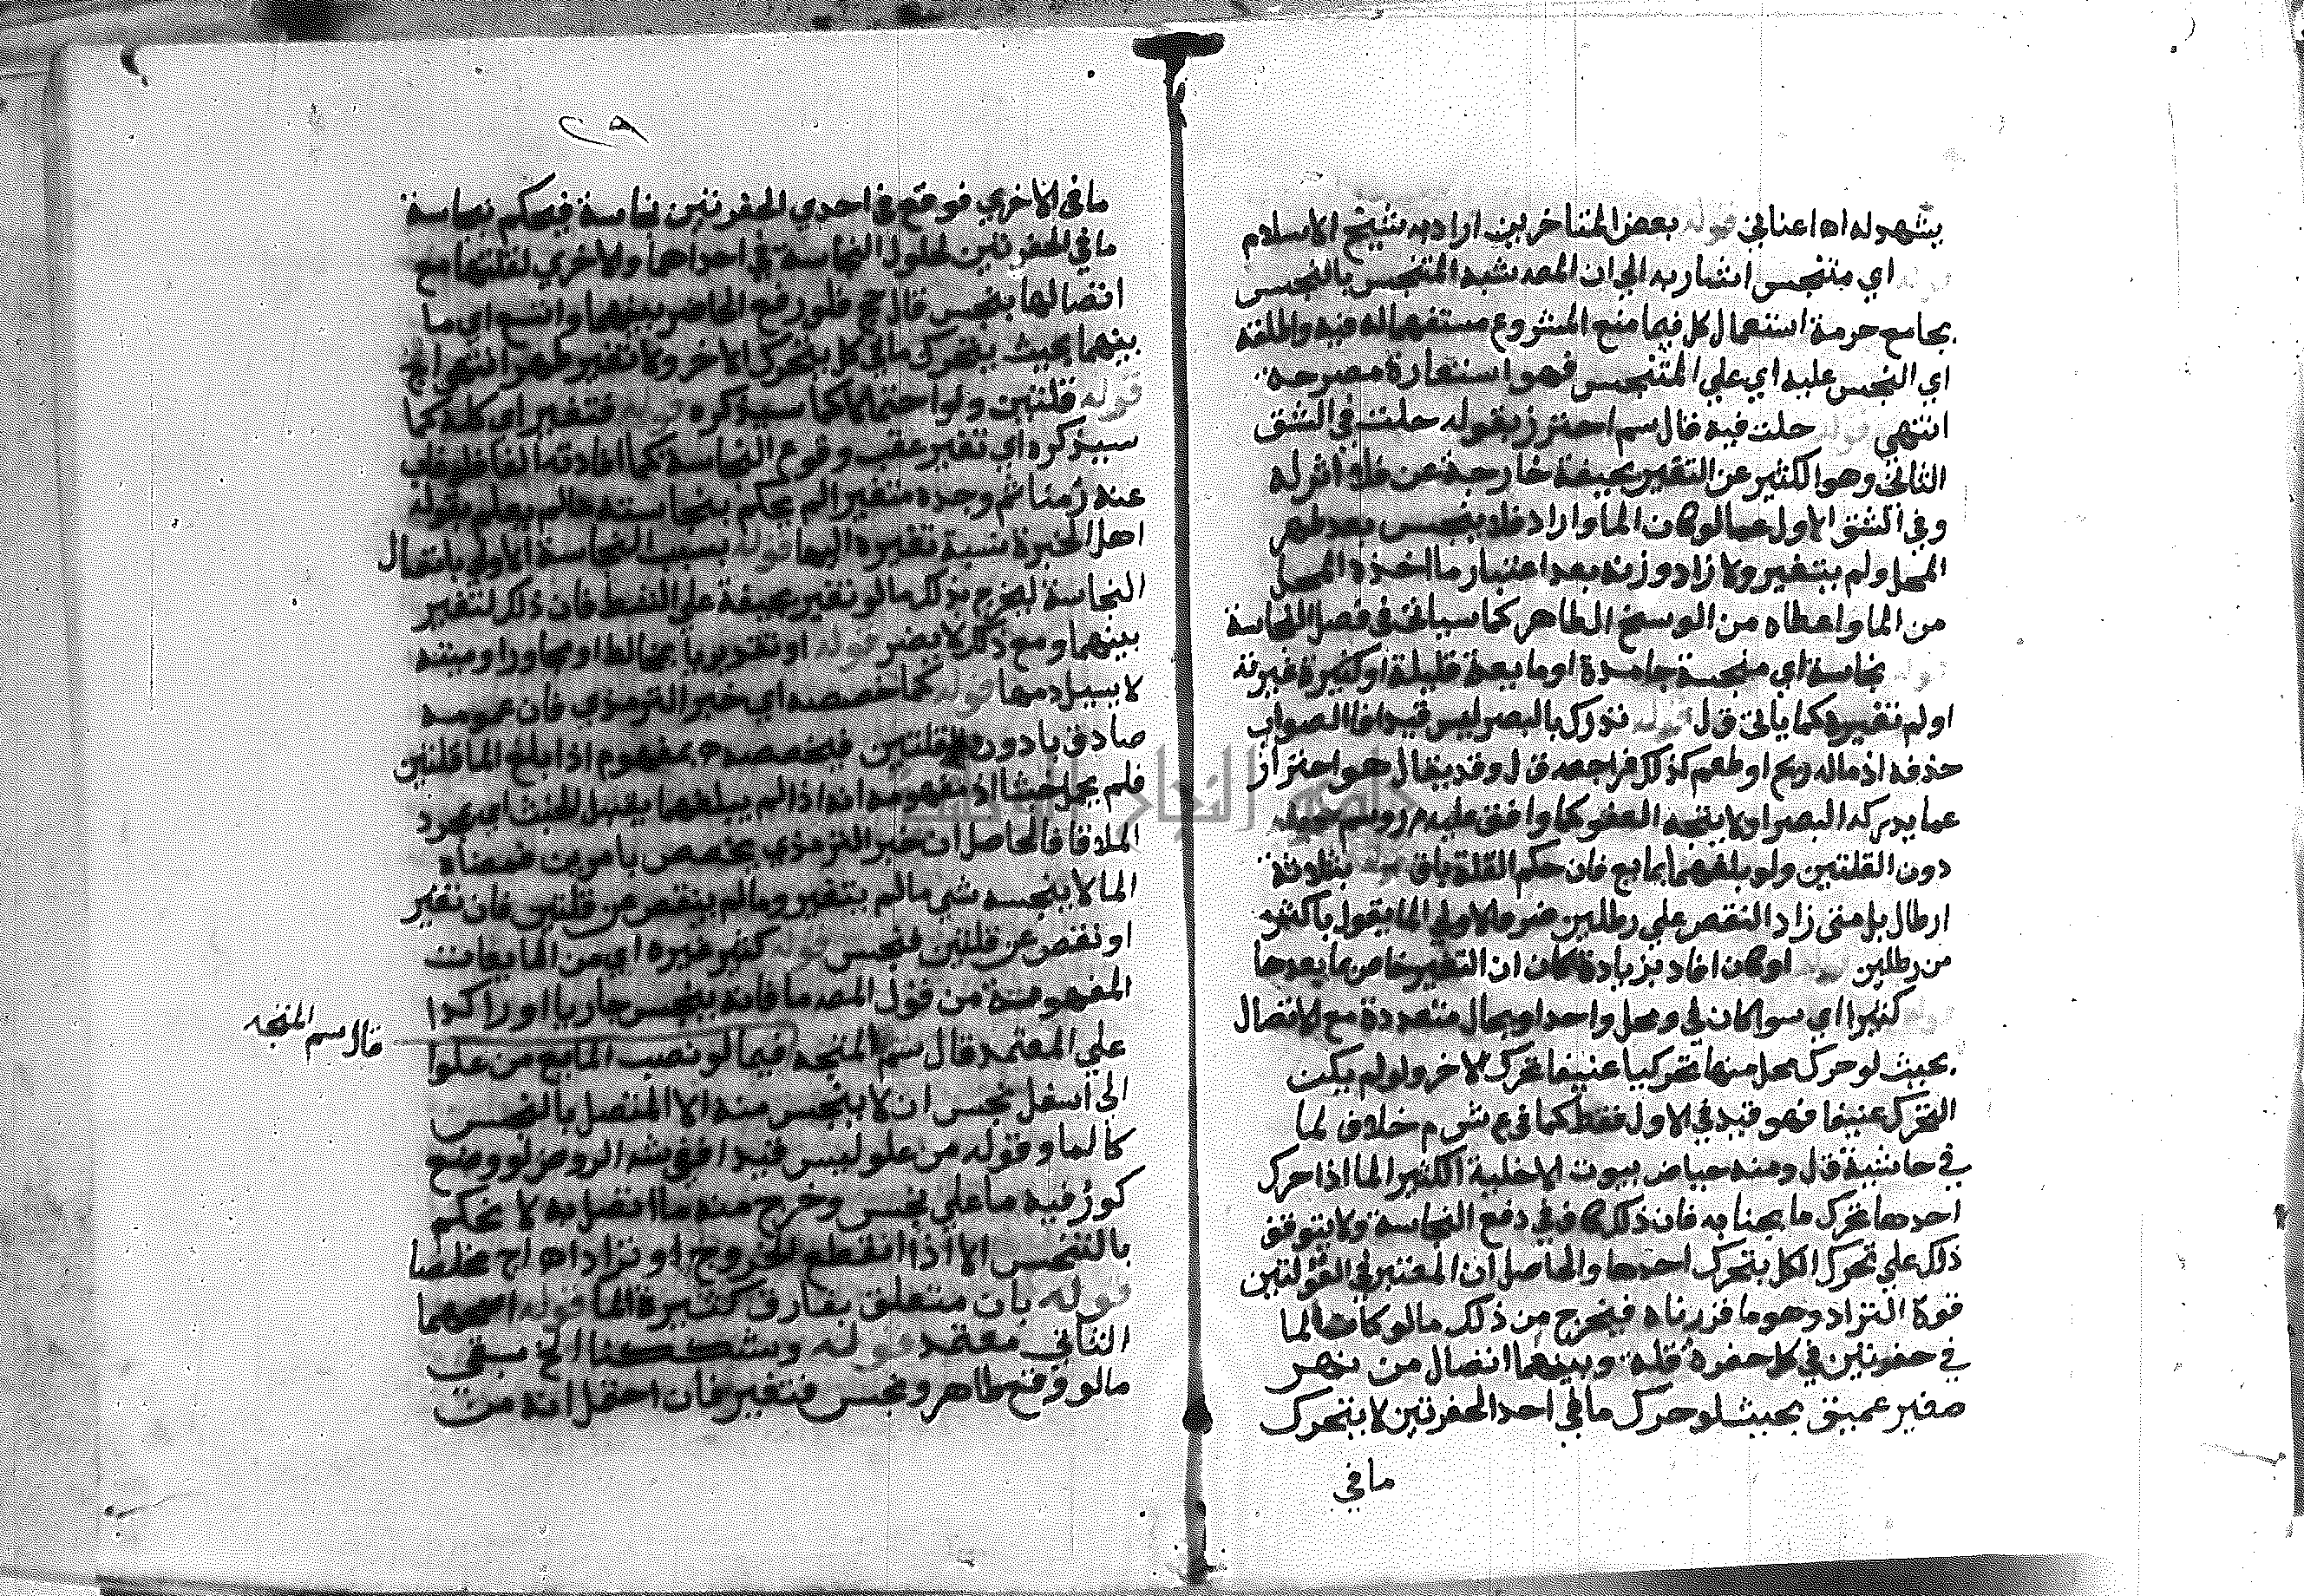 يشهد له اه اعناني قوله بعض المتاخرين اراد به شيخ الاسلام
قوله اي متنجس اشار به الي ان المصـ شبه المتنجس بالنجس
بجامع حرمة استعمال كل فيما منع المشروع مستفهما له فيه واطلقه
اي النجس عليه اي علي المتنجس فهو استعارة مصرحة
انتهي قوله حلت فيه قال سم احترز بقوله حلت في الشق
الثاني وهو الكثير عن التغير بجيفة خارجة عن فلا اثر له
وفي الشق الاول عما لو كان الما وارادفلا ينجس بعد طهر
المحل ولم يتغير ولا زاد وزنه بعد اعتبار ما اخذه المحل
من الما واعطاه من الوسخ الطاهر كما سياتي في فصل النجاسة
قوله نجاسة اي منجسة جامدة او مايعة قليلة او كثيرة غيرته
او لم تغيره كما ياتي ق ل قوله تدرك بالبصر ليس قيدا فالصواب
حذفه اذ ماله ريح او طعم كذلك فراجعه ق ل وقد يقال هو احتراز
عما يدركه البصر اولا يتجه العفو كما وافق عليه م ر وسم قوله
دون القلتين ولو بلغهما بمايع فان حكم القلة باق قوله بثلاثة
ارطال بل متي زاد النقص علي رطلين ضر فالاولي الما يقول باكثر
من رطلين قوله او كان افاد بزيادة كان ان التغير خاص بما بعدها
قوله كثيرا اي سوا كان في محل واحد او محال متعددة مع الاتصال
بحيث لو حرك محل منها تحركيا عنيفا تحرك الاخر ولو لم يكن
التحرك عنيفا فهو قيد في الاول فقط كما في ع ش م خلاف لما
في حاشية ق ل ومنه حياض بيوت الاخلية الكثير الما اذا حرك
احدها تحرك ما يجنابه فان ذلك كاف في دفع النجاسة ولا يتوقف
ذلك علي تحرك الكل بتحرك احدها والحاصل ان المعتبر في القولتين
قوة التراد وهو ما قررناه فيخرج من ذلك ما لو كان الما
في حفرتين في كل حفرة قلة وبينهما اتصال من نهر
صغير عميق بحيث لو حرك ما في احد الحفرتين لا يتحرك
ما في
٢٩
ما في الاخري فوقع في احدي الحفرتين نجاسة فيحكم نجاسة
ما في الحفرتين لحلول النجاسة في احداهما والاخري لقلتها مع
اتصالها بنجس قال حج فلو رفع الحاضر بينهما واتسع اي ما
بينهما بحيث يتحرك ما في كل بتحرك الاخر ولا تغير طهر انتهي الخ
قوله قلتين ولو احتمالا كما سيذكره قوله فتغير اي كله كما
سيذكره اي تغير عقب وقوع النجاسة كما افادته الفا فلو غاب
عنه زمنا ثم وجده متغيرا لم يحكم بنجاسته ما لم يعلم بقوله
اهل الخبرة نسبة تغيره اليها قوله بسبب النجاسة الاولي باتصال
النجاسة ليخرج بذلك ما لو تغير بجيفة علي الشط فان ذلك لتغير
بينهما ومع ذلك لا يضر قوله او تقديريا بمخالط او مجاور او ميتة
لا يسيل دمها قوله كما خصصه اي خبر الترمذي فان عمومه
صادق بادون القلتين فيخصصه بمفهوم اذا بلغ الما قلتين
فلم يحل خبثا اذ مفهومه انه اذا لم يبلغهما يقبل الخبث اي بمجرد
الملاقا فالحاصل ان خبر الترمذي مخصص بامرين فمعناه
الما لا ينجسه شي ما لم يتغير وما لم ينقص عن قلتين فان تغير
او نقص عن قلتين فنجس قوله كثير غيره اي من المايعات
المفهومة من قول المصـ ما فانه ينجس جاريا او راكدا
علي المعتمد قال سم المتجه فيما لو نصب المايع من علوا
الي اسفل نجس ان لا ينجس منه الا المتصل بالنجس
كالما وقوله من علو ليس قيدا ففي شـ الروض لو وضع
كوز فيه ما علي نجس وخرج منه ما اتصل به لا نحكم
بالتنجس الا اذا انقطع الخروج او تزاد اه اج مخلصا
قوله بان متعلق بفارق كثيرة الما قوله اصحهما
الثاني معتمد قوله وشككنا الخ سبقي
ما لو وقع طاهر ونجس فتغير فان احتمل انه من
قال سم المتجه